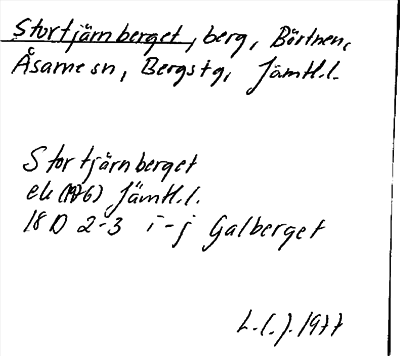 Stortjärnberget, berg, Börtnen,
Åsarne sn, Bergs tg, Jämtl.l.
Stortjärnberget
ek (1976) Jämtl.l.
18 D 2-3 i-j Galberget
L.C.J. 1977